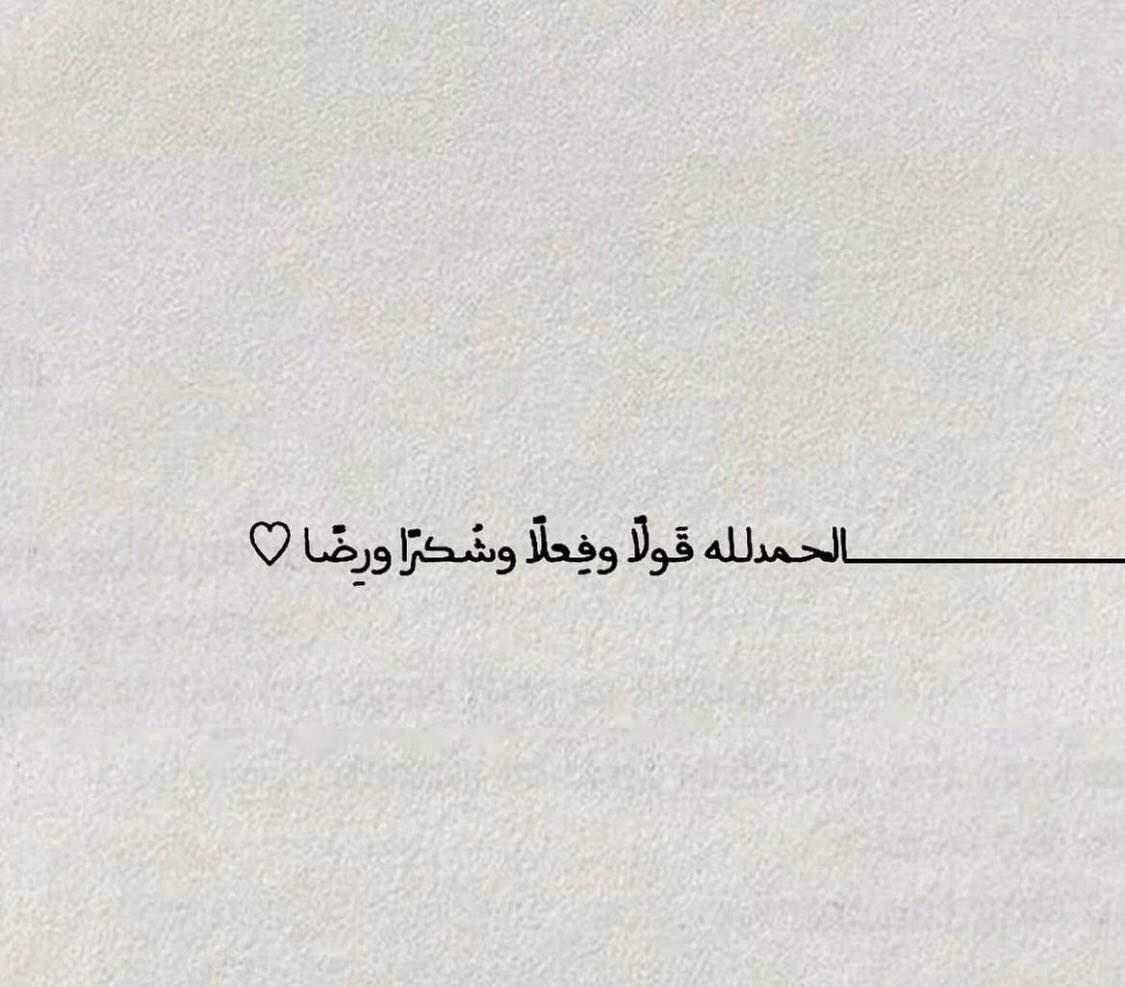 الحمدلله قَولًا وفِعلًا وشُكرًا ورِضًا ♡